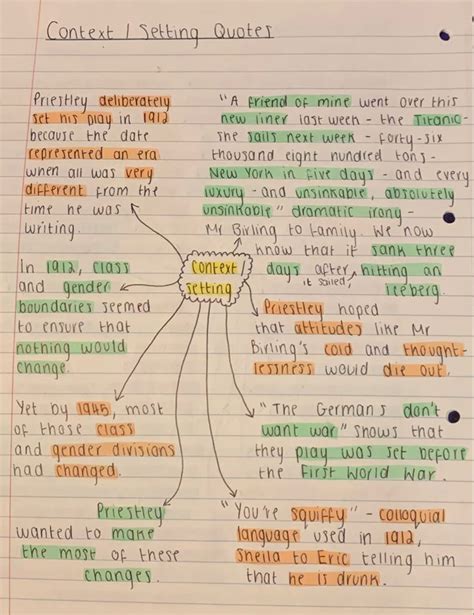 Context / Setting Quotes
Priestley deliberately
set his play in 1912
because the date
represented an era
when all was very
different from the
time he was
writing.
"A friend of mine went over this
new liner last week - the Titanic -
she sails next week - forty-six
thousand eight hundred tons -
New York in five days - and every
luxury - and unsinkable, absolutely
unsinkable" dramatic irony -
Mr Birling to family. We now
know that it sank three
days after it sailed, hitting an
Iceberg.
Context /
Setting
In 1912, class
and gender
boundaries seemed
to ensure that
nothing would
change.
Priestley hoped
that attitudes like Mr
Birling's cold and thought-
lessness would die out.
Yet by 1945, most
of those class
and gender divisions
had changed.
"The Germans don't
want war" shows that
they play was set before
the First World War.
Priestley
wanted to make
the most of these
changes.
"You're squiffy" - colloquial
language used in 1912,
Sheila to Eric telling him
that he is drunk.